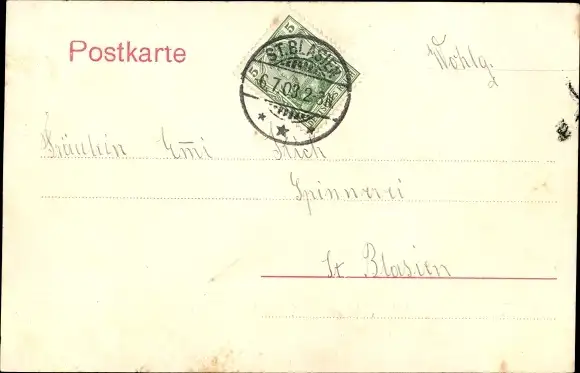 Postkarte
Wohlg.
5
ST. BLASIEN
6.7.03.2-3N
Fräulein Emi
Spinnerei
St Blasien